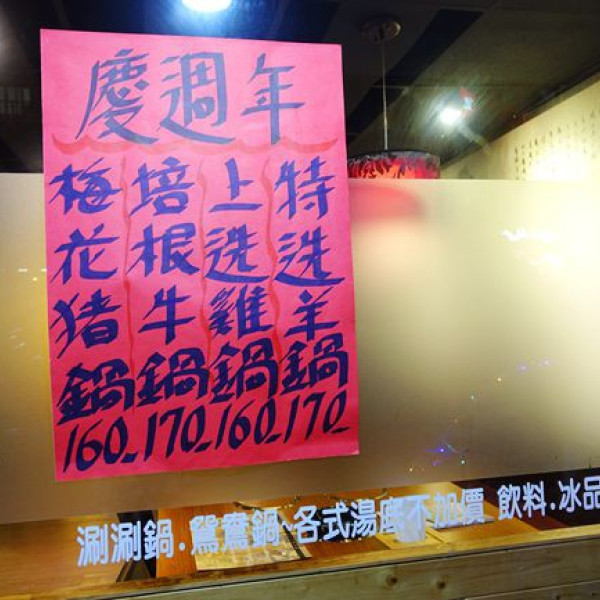 慶週年
特選羊鍋170-
上選雞鍋160-
培根牛鍋170-
梅花猪鍋160-
涮涮鍋.鴛鴦鍋~各式湯底不加價 飲料.冰品